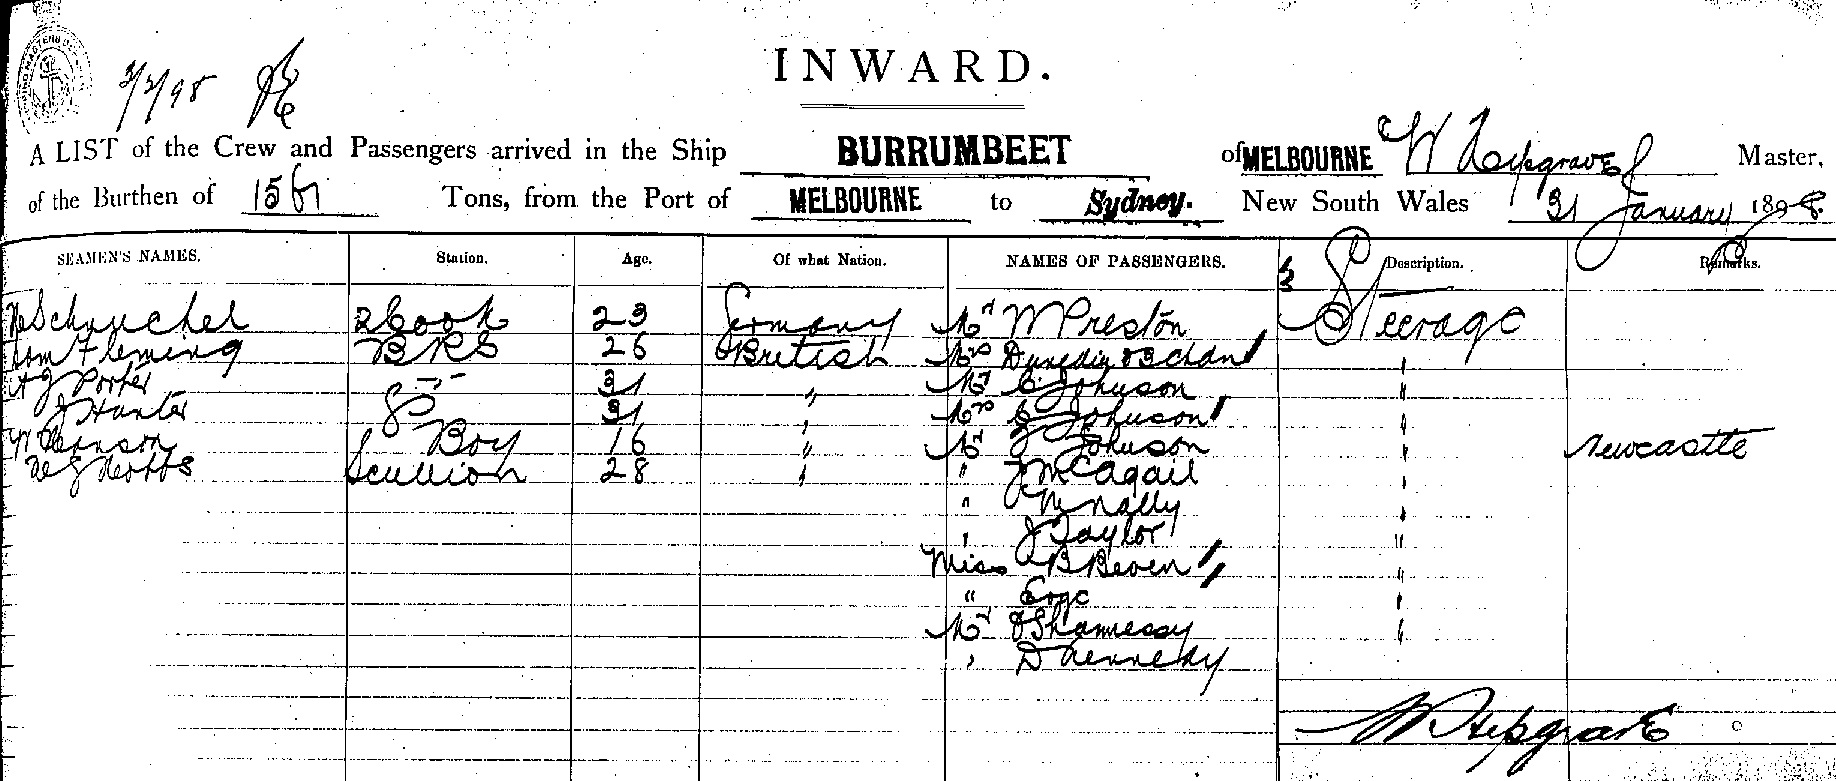 2/2/98
INWARD.
A LIST of the Crew and Passengers arrived in the Ship BURRUMBEET of MELBOURNE W Hepgrave Master,
of the Burthen of Tons, from the Port of MELBOURNE to Sydney. New South Wales 31 January 1898
SEAMEN'S NAMES. Station. Age. Of what Nation. NAMES OF PASSENGERS. Description. Remarks.
2 Cook 23 Germany Mr W Preston Steerage
Fleming BRS 26 British Mrs & 3 Chdn "
A J Porter 31 " Mr C Johnson "
J Hunter 31 " Mrs Johnson "
Boy 16 " Mr J Johnson " Newcastle
Scullion 28 " " J "
" Nally "
" J Taylor "
Miss B Beven "
" "
Mr O'Shannessy "
" D Kennedy
W Hepgrave